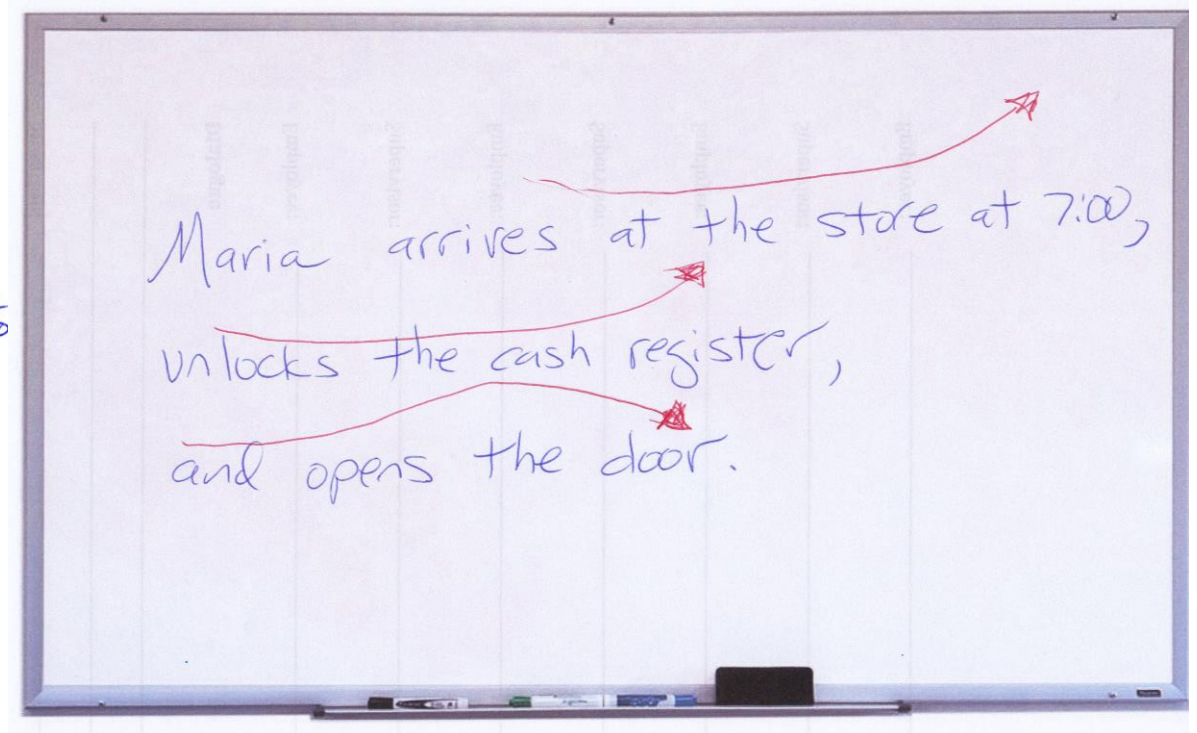 Maria arrives at the store at 7:00,
unlocks the cash register,
and opens the door.